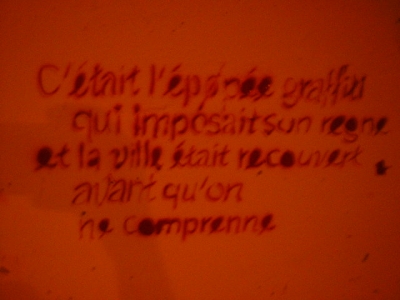 C'était l'épopée graffiti
qui imposait son regne
et la ville était recouvert
avant qu'on
ne comprenne